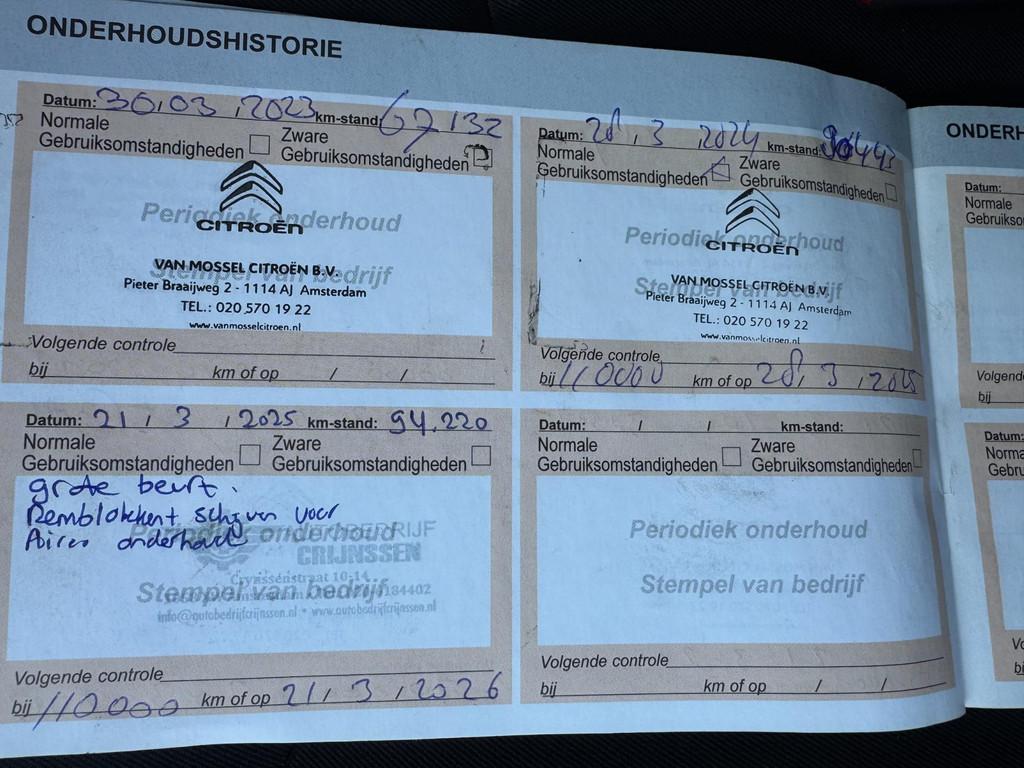 ONDERHOUDSHISTORIE
Datum: 30, 03, 2023 km-stand: 67132
Normale Gebruiksomstandigheden
Zware Gebruiksomstandigheden
Periodiek onderhoud
CITROËN
Stempel van bedrijf
VAN MOSSEL CITROËN B.V.
Pieter Braaijweg 2 - 1114 AJ Amsterdam
TEL.: 020 570 19 22
www.vanmosselcitroen.nl
Volgende controle
bij km of op / /
Datum: 28, 3, 2024 km-stand: 90443
Normale Gebruiksomstandigheden
Zware Gebruiksomstandigheden
Periodiek onderhoud
CITROËN
Stempel van bedrijf
VAN MOSSEL CITROËN B.V.
Pieter Braaijweg 2 - 1114 AJ Amsterdam
TEL.: 020 570 19 22
www.vanmosselcitroen.nl
Volgende controle
bij 110000 km of op 28, 3, 2025
Datum: 21 / 3 / 2025 km-stand: 94.220
Normale Gebruiksomstandigheden
Zware Gebruiksomstandigheden
grote beurt.
Remblokken+ schijven voor
Airco onderhoud
Periodiek onderhoud
CRIJNSSEN
Stempel van bedrijf
info@autobedrijfcrijnssen.nl • www.autobedrijfcrijnssen.nl
Volgende controle
bij 110000 km of op 21 / 3 / 2026
Datum: / / km-stand:
Normale Gebruiksomstandigheden
Zware Gebruiksomstandigheden
Periodiek onderhoud
Stempel van bedrijf
Volgende controle
bij km of op / /
ONDERH
Datum:
Normale
Gebruikso
Volgend
bij
Datum:
Norma
Gebru
Vo
bi